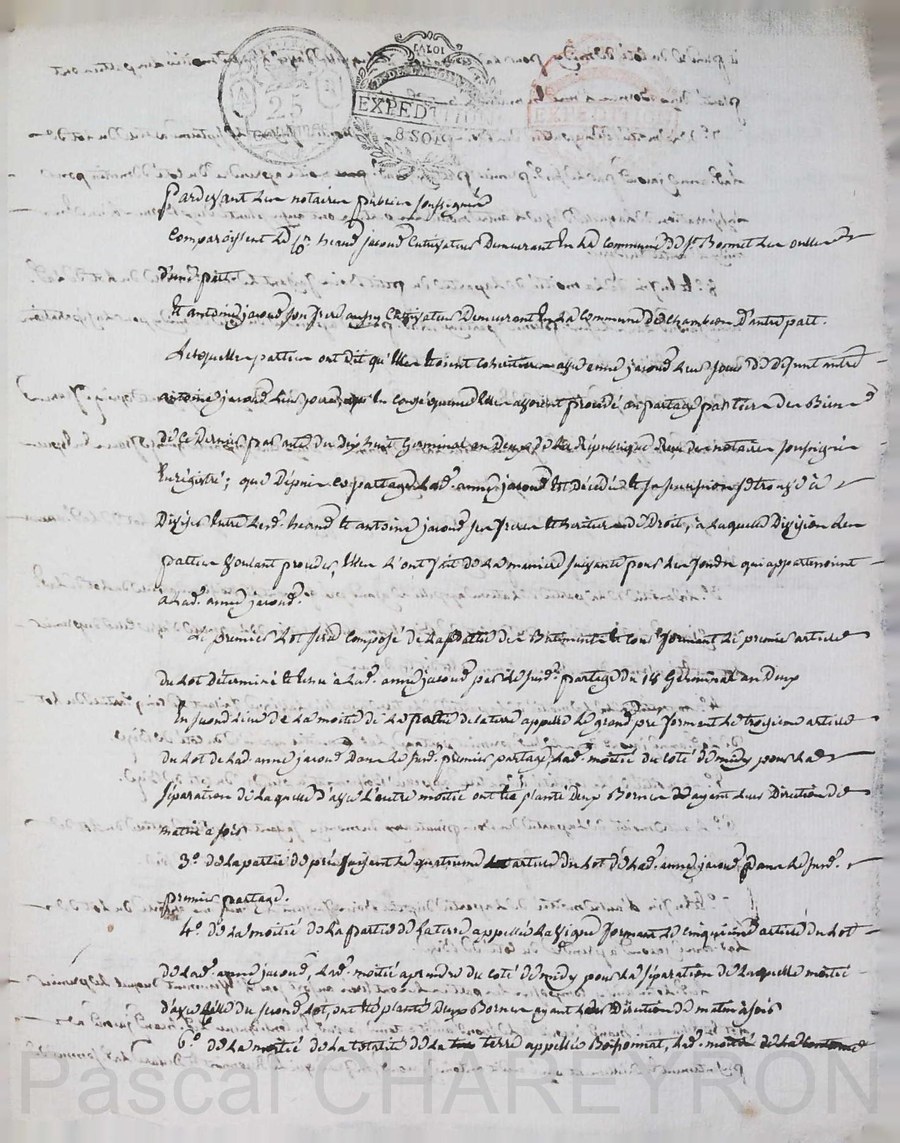 25
LA LOI
EXPEDITION
8 SOLS
EXPEDITION
Pardevant les notaires publics soussignés
Comparoissent le Cen jacoud Cultivateur Demeurant En La Commune de St Bonnet les oulles
d'une part.
Et antoine jacoud son frere aussy Cultivateur Demeurant En La Commune de Chambles D'autre part.
Lesquelles parties ont dit qu'Elles Etoient cohéritiers avec anne jacoud Leur soeur de défunt
antoine jacoud Leur pere, qu'En Conséquence Elles avoient procédé au partage des Biens
de Ce Dernier par acte du dix huit Germinal an Deux de La République Reçu des notaires soussignés
Enrégistré; que Depuis Ce partage Lad. anne jacoud Est décédée Et sa succession se trouve à
Diviser Entre Lesd. Et antoine jacoud ses freres Et heritiers de Droit, a Laquelle Division Les
parties Voulant procéder, Elles L'ont fait de La maniere suivante pour Les fonds qui appartenoient
a Lad. anne jacoud.
Le premier Lot sera Composé de La partie des Batiments Et Cour formant Le premier article
du Lot Déterminé Et Echu a Lad. anne jacoud par Le susd. partage du 18 Germinal an Deux
En second Lieu de La moitié de La partie de La terre appellée Le grand pré formant Le troisieme article
du Lot de Lad. anne jacoud Dans Le susd. premier partage, Lad. moitié du Coté de midy pour La
séparation de Laquelle d'avec L'autre moitié ont Eté planté Deux Bornes ayant Leurs Direction de
matin à soir
3.° de La partie de pré faisant Le quatrieme article du Lot de Lad. anne jacoud Dans Le susd.
premier partage.
4.° de La moitié de La partie de La terre appellée La Vigne formant Le Cinquieme article du Lot
de Lad. anne jacoud, Lad. moitié a prendre du Coté de midy pour La séparation de Laquelle moitié
d'avec Celle du second Lot, ont Eté planté Deux Bornes ayant Leurs Direction de matin à soir
6.° de La moitié de La totalité de La terre appellée Lad. moitié de La Contenue
Pascal CHAREYRON